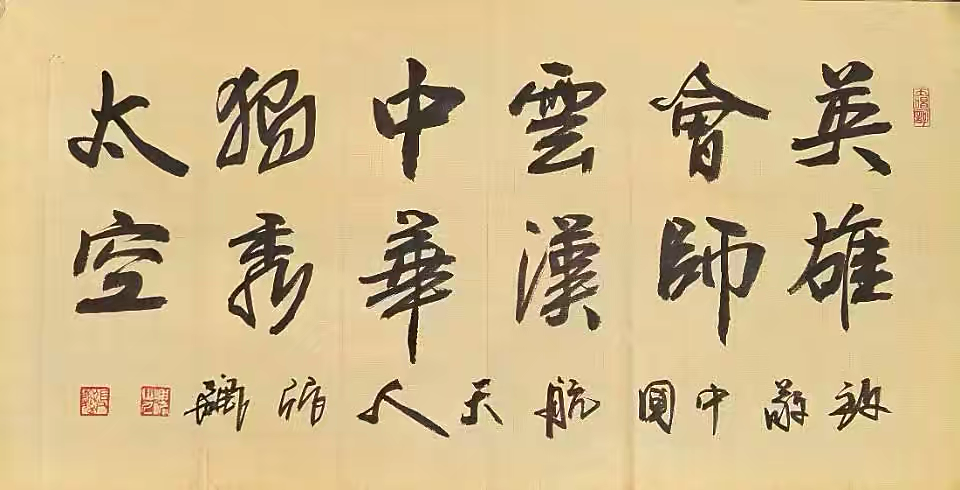 英雄
會師
雲漢
中華
獨秀
太空
致敬中國航天人